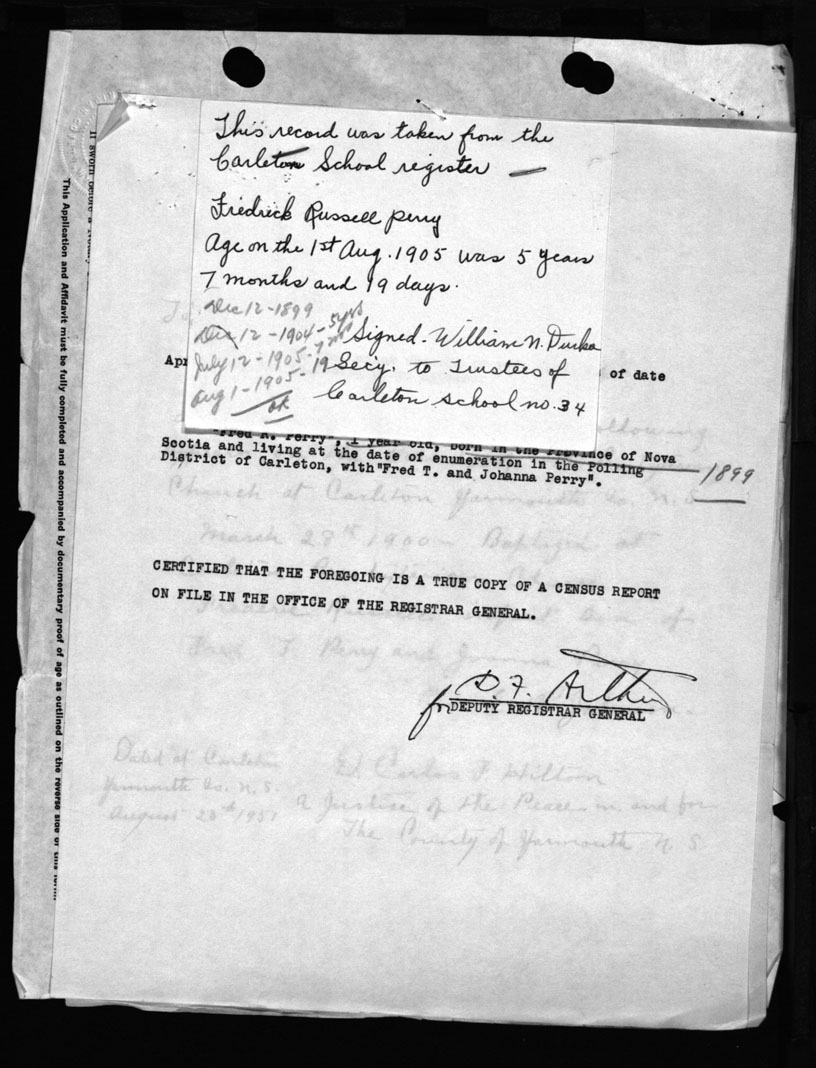 This record was taken from the
Carleton School register —
Fredrick Russell Perry
Age on the 1st Aug. 1905 was 5 years
7 months and 19 days.
Dec 12-1899
Dec 12-1904-5yrs
July 12-1905-7
Aug 1-1905-19
OK
Signed. William N.
Secy. to Trustees of
Carleton School no. 34
Apr
of date
"Fred R. Perry", 1 year old, born in the Province of Nova
Scotia and living at the date of enumeration in the Polling
District of Carleton, with "Fred T. and Johanna Perry".
1899
Church at Carleton Yarmouth Co. N.S.
March 28th 1900 Baptized at
Fred T. Perry and
CERTIFIED THAT THE FOREGOING IS A TRUE COPY OF A CENSUS REPORT
ON FILE IN THE OFFICE OF THE REGISTRAR GENERAL.
for
DEPUTY REGISTRAR GENERAL
Dated at Carleton
Yarmouth Co. N.S.
August 1951
Carlos P. Hilton
a Justice of the Peace in and for
The County of Yarmouth N S
It sworn before a Notary
This Application and Affidavit must be fully completed and accompanied by documentary proof of age as outlined on the reverse side of this form.